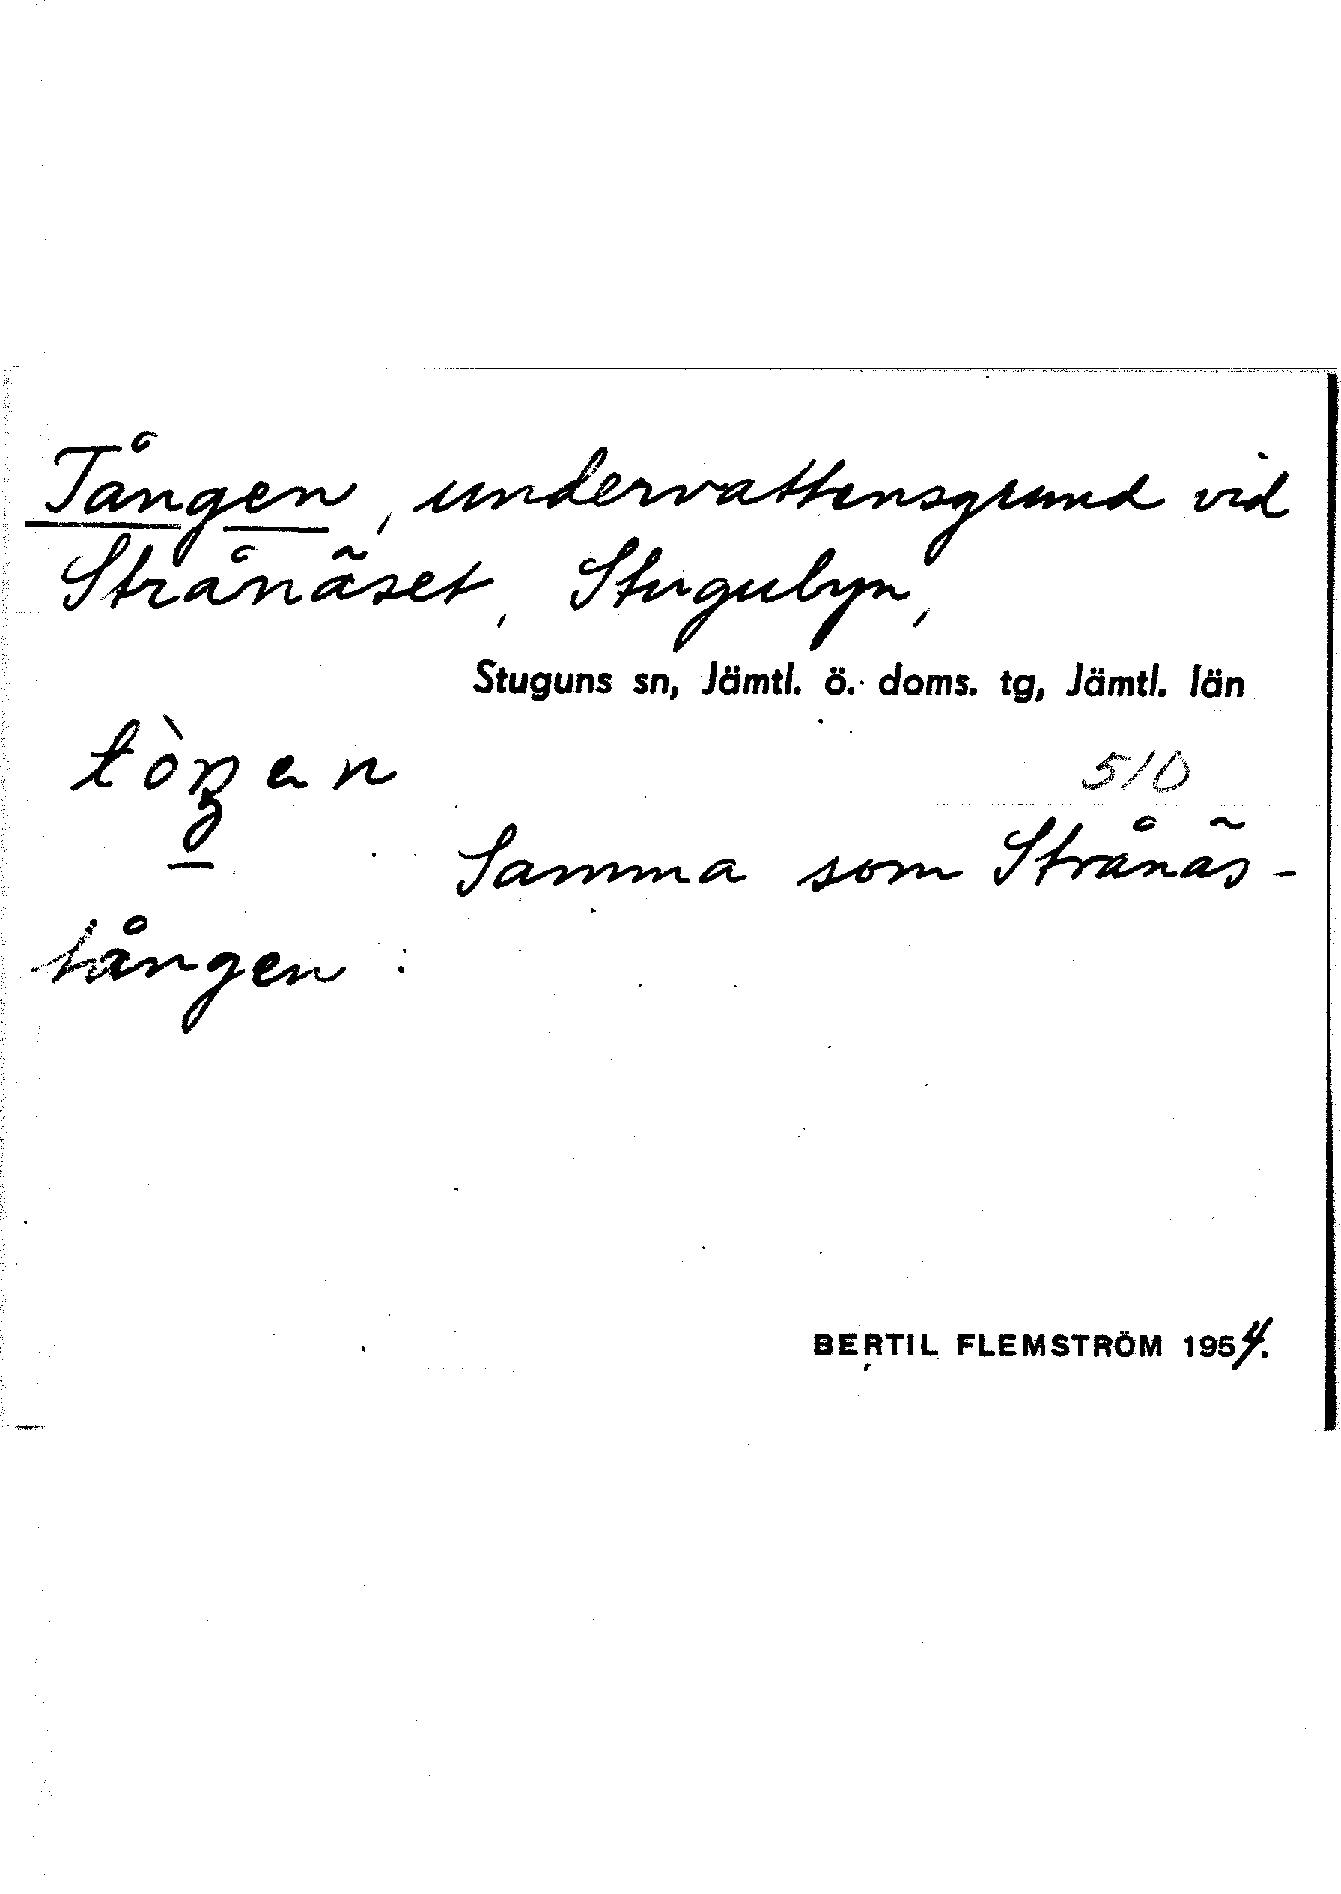 Tången, undervattensgrund vid
Strånäset, Stugubyn,
Stuguns sn, Jämtl. ö. doms. tg, Jämtl. län
510
Samma som Strånäs-
tången.
BERTIL FLEMSTRÖM 1954.